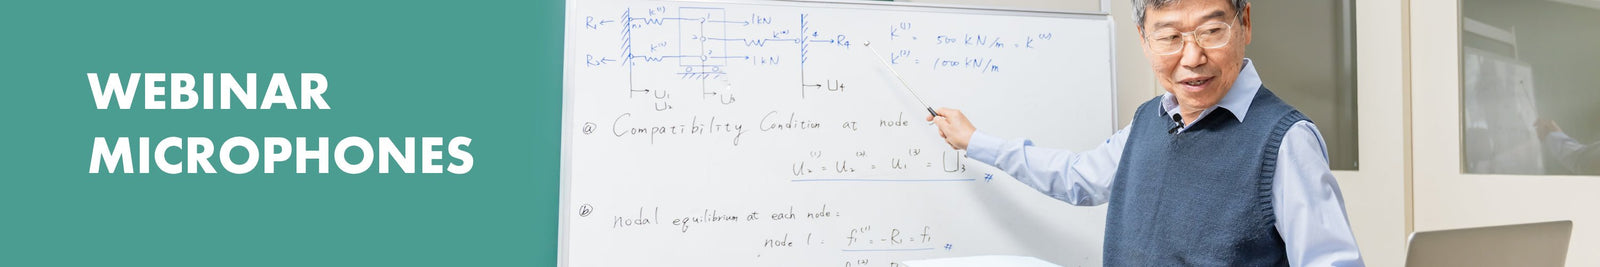 WEBINAR
MICROPHONES
R₁ ← K⁽¹⁾ 1 → 1kN
K⁽³⁾ 4 → R₄
K⁽²⁾ 2 → 1kN
U₁ U₃ → U₄
U₂
K⁽¹⁾ = 500 kN/m = K⁽³⁾
K⁽²⁾ = 1000 kN/m
ⓐ Compatibility Condition at node
U₂⁽¹⁾ = U₂⁽²⁾ = U₁⁽³⁾ = U₃ #
ⓑ nodal equilibrium at each node:
node 1: f₁⁽¹⁾ = -R₁ = f₁ #